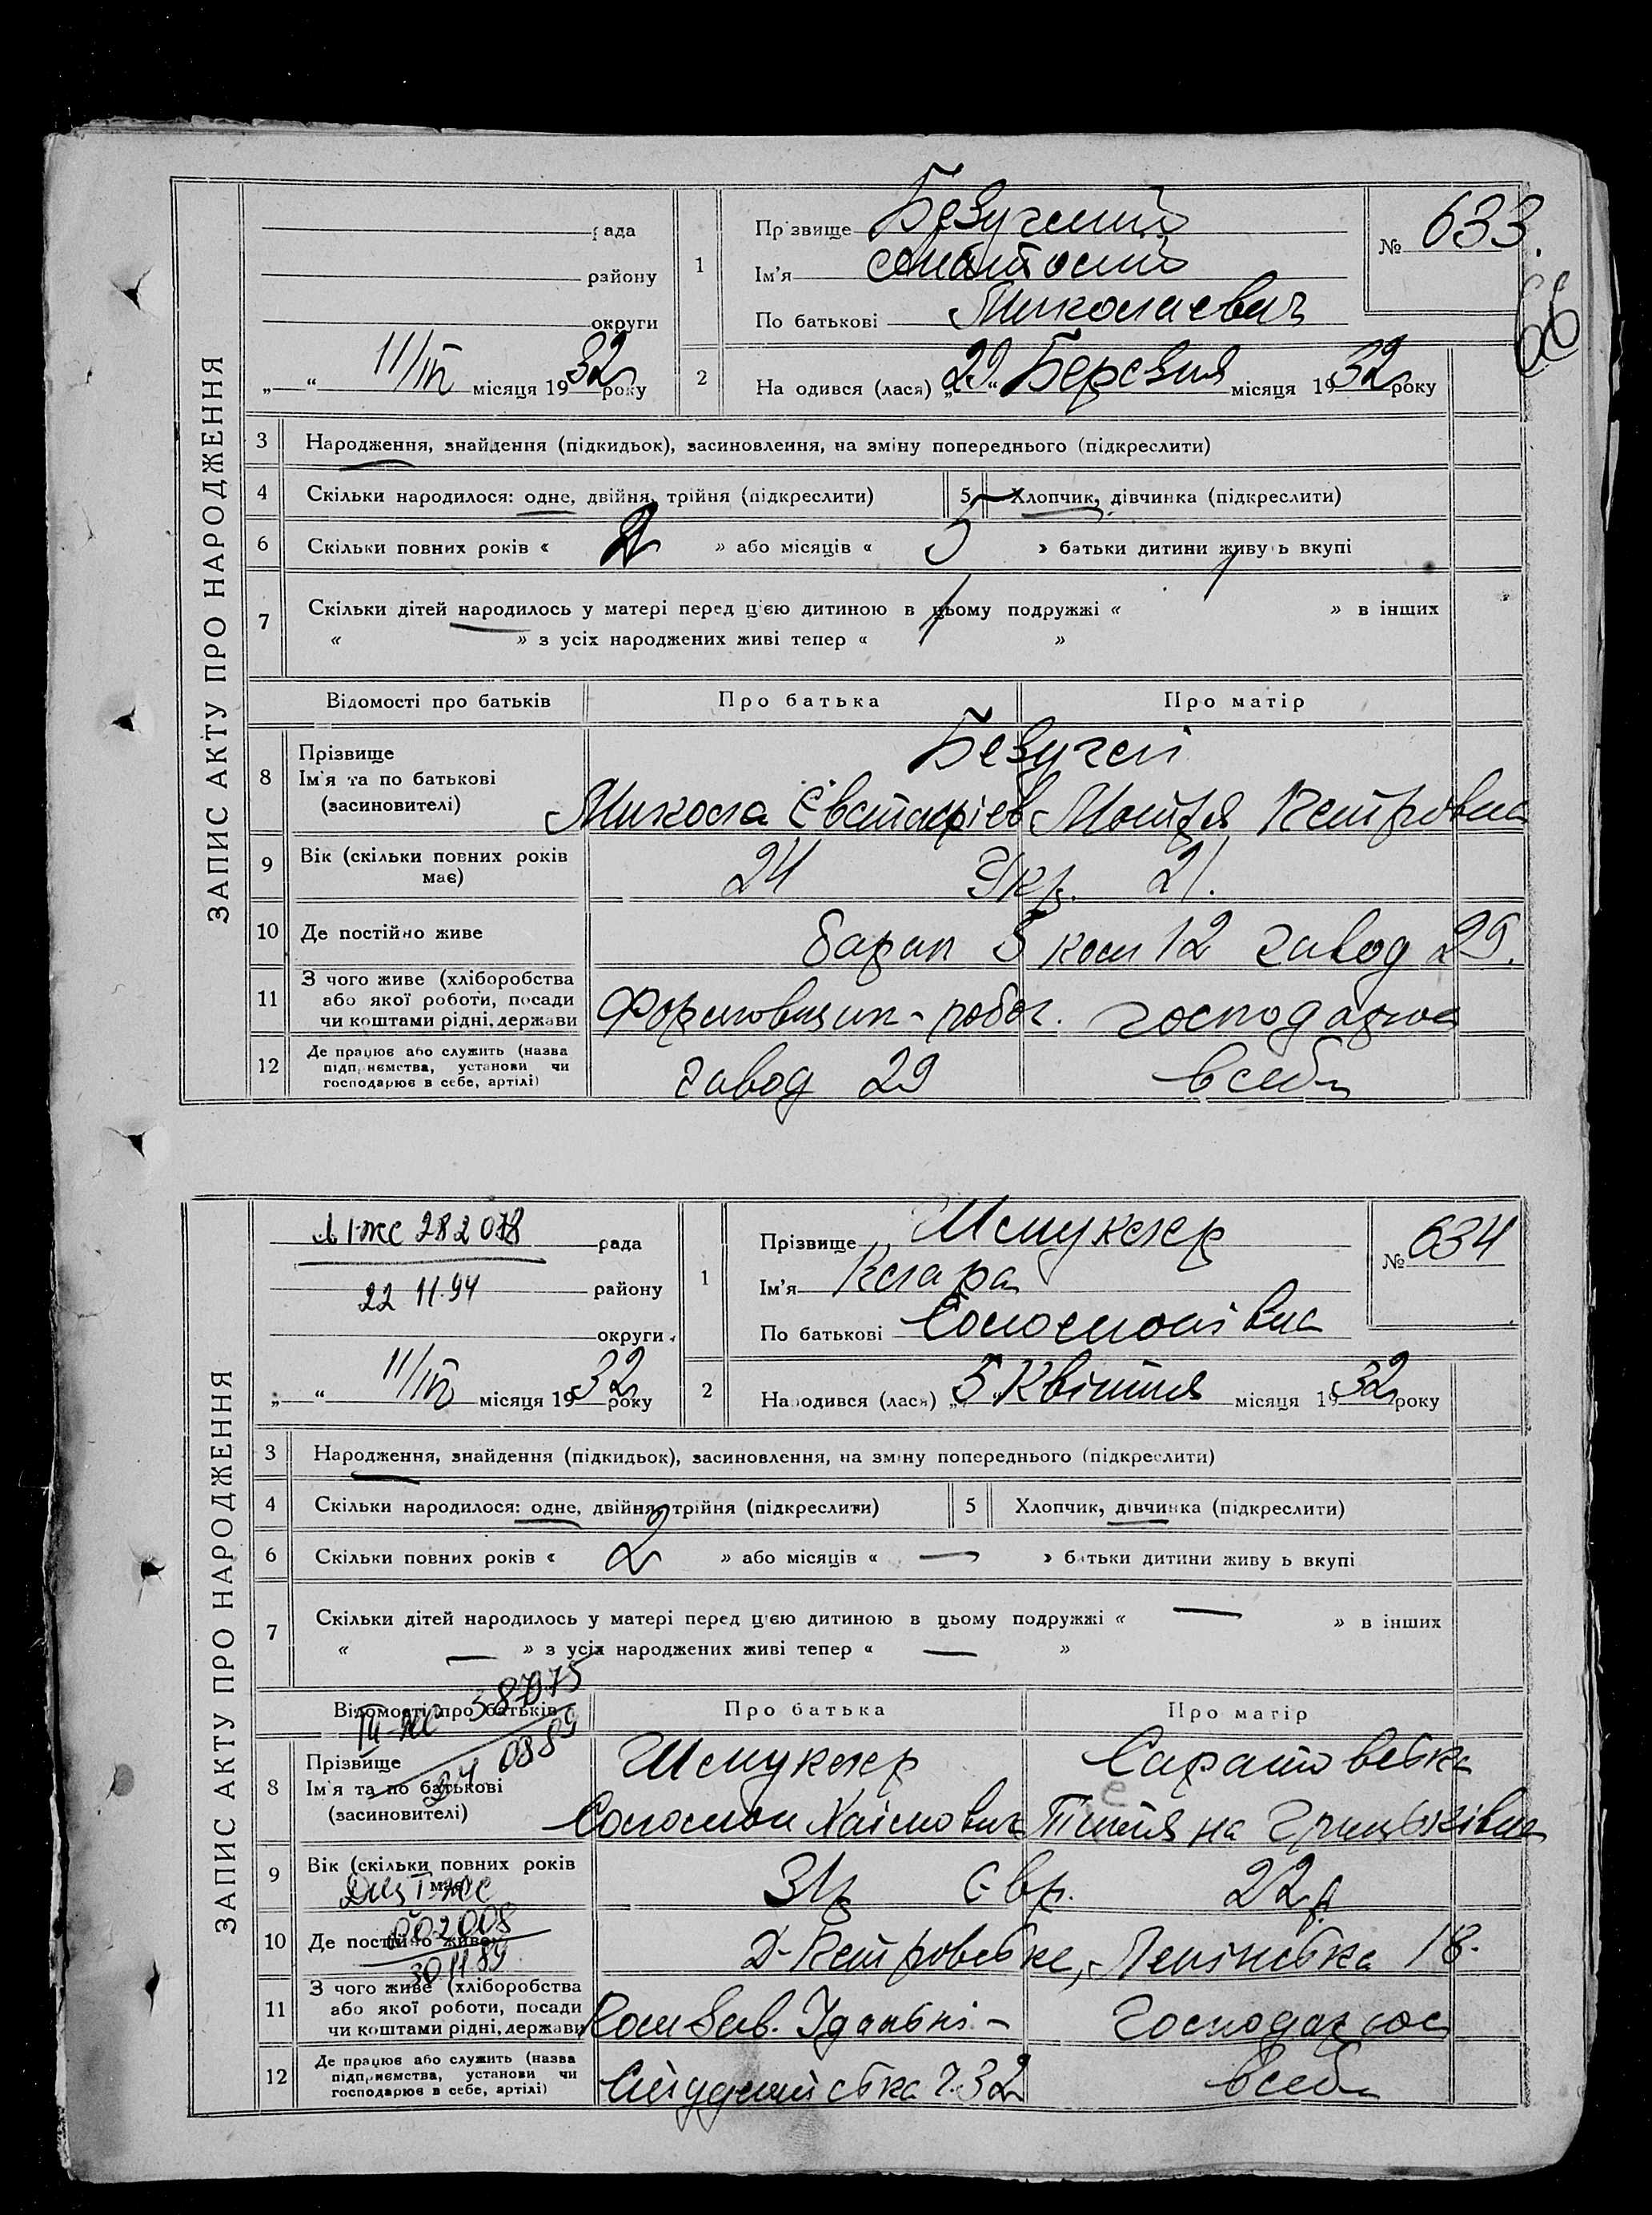 ЗАПИС АКТУ ПРО НАРОДЖЕННЯ
рада
району
округи
„ “ 11/IV місяця 1932 року
1 Прізвище Безуглий
Ім'я Анатолій
По батькові Миколаевич
№ 633.
66
2 Народився (лася) „29“ Березня місяця 1932 року
3 Народження, знайдення (підкидьок), засиновлення, на зміну попереднього (підкреслити)
4 Скільки народилося: одне, двійня, трійня (підкреслити) 5 Хлопчик, дівчинка (підкреслити)
6 Скільки повних років « 2 » або місяців « » батьки дитини живуть вкупі
7 Скільки дітей народилось у матері перед цією дитиною в цьому подружжі « » в інших
« » з усіх народжених живі тепер « »
Відомості про батьків Про батька Про матір
8 Прізвище
Ім'я та по батькові
(засиновителі)
Безуглі
Микола Мотря Петровна
9 Вік (скільки повних років має) 24 Укр. 21.
10 Де постійно живе барак 5 ком 12 завод 29.
11 З чого живе (хліборобства
або якої роботи, посади
чи коштами рідні, держави
Формовщик - робоч. господарює
12 Де працює або служить (назва
підприємства, установи чи
господарює в себе, артілі)
завод 29 в себе
ЗАПИС АКТУ ПРО НАРОДЖЕННЯ
282018 рада
22 11.94 району
округи
„ “ 11/IV місяця 1932 року
1 Прізвище Шмуклер
Ім'я Клара
По батькові Соломонівна
№ 634
2 Народився (лася) „5“ Квітня місяця 1932 року
3 Народження, знайдення (підкидьок), засиновлення, на зміну попереднього (підкреслити)
4 Скільки народилося: одне, двійня, трійня (підкреслити) 5 Хлопчик, дівчинка (підкреслити)
6 Скільки повних років « 2 » або місяців « — » батьки дитини живуть вкупі
7 Скільки дітей народилось у матері перед цією дитиною в цьому подружжі « — » в інших
« — » з усіх народжених живі тепер « — »
Відомості про батьків Про батька Про матір
8 Прізвище
Ім'я та по батькові
(засиновителі)
Шмуклер Саратовська
Соломон Хаімович
9 Вік (скільки повних років має) 31р Євр. 22 р
10 Де постійно живе Д-Петровське, Ленінська 18.
11 З чого живе (хліборобства
або якої роботи, посади
чи коштами рідні, держави
Пом Зав. Їдальні - Господарює
12 Де працює або служить (назва
підприємства, установи чи
господарює в себе, артілі)
Ч. 32 в себе